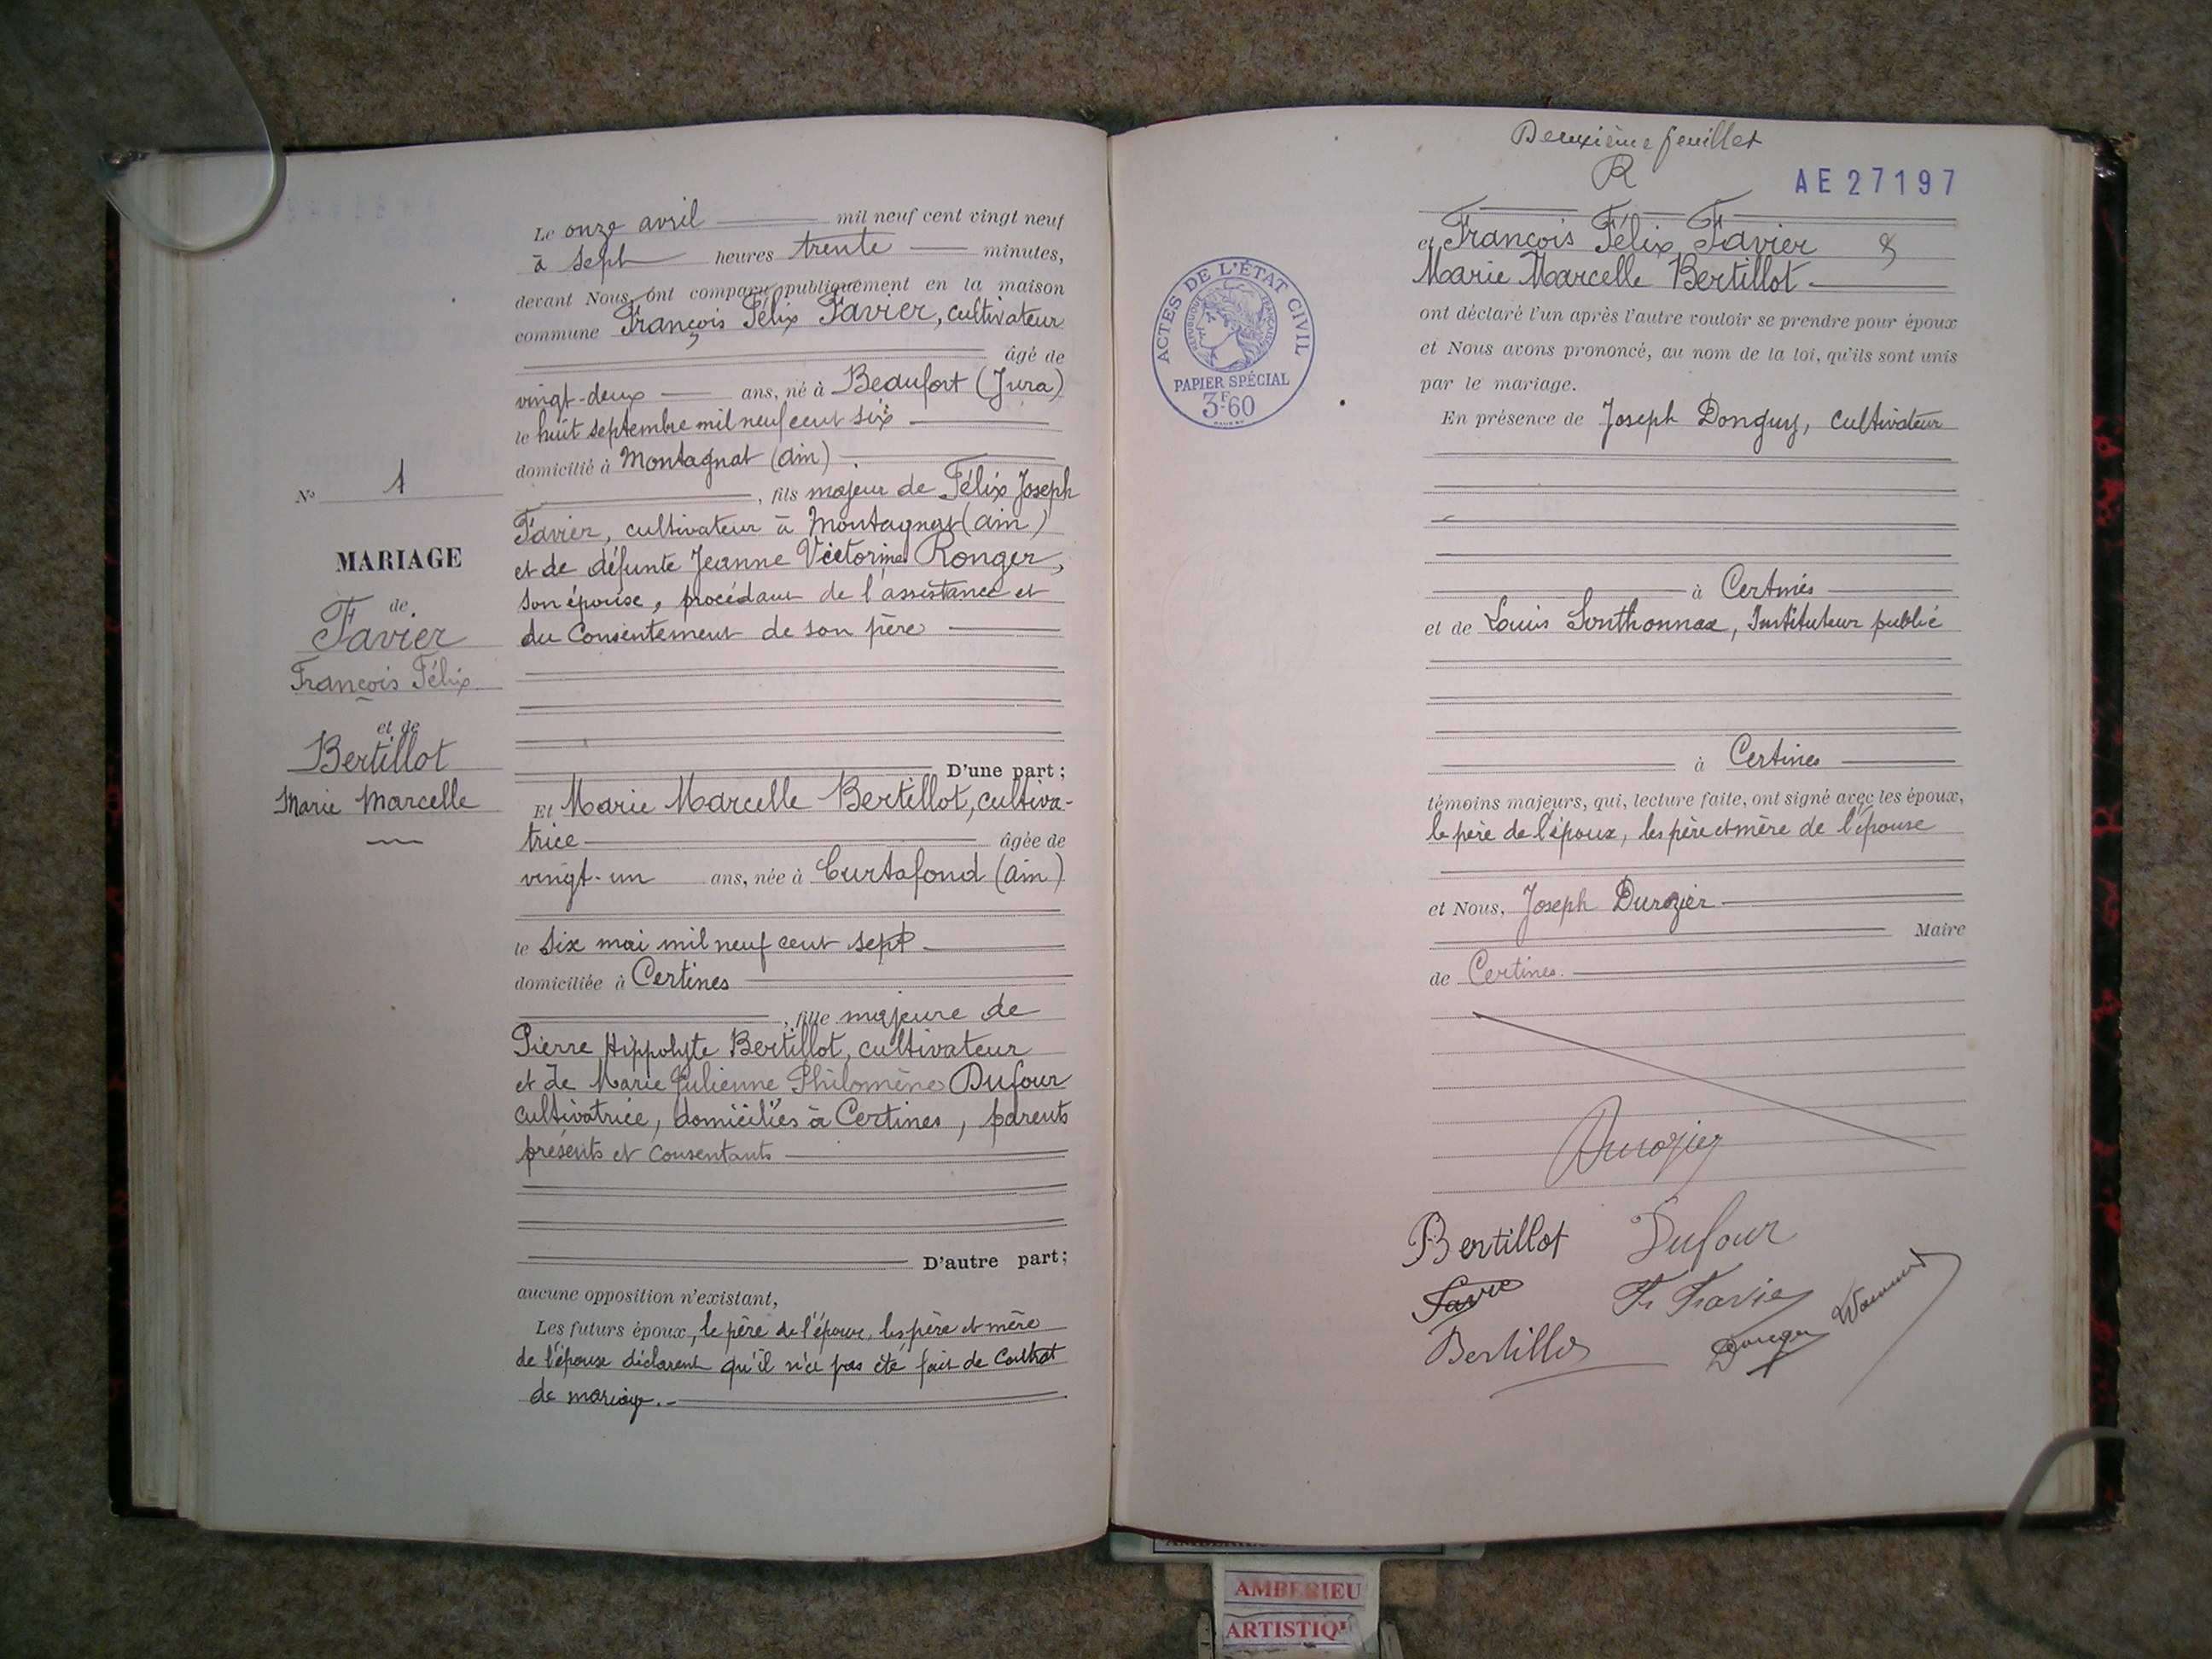 Le onze avril mil neuf cent vingt neuf
à sept heures trente minutes,
devant Nous ont comparu publiquement en la maison
commune François Félix Favier, cultivateur
âgé de
vingt-deux ans, né à Beaufort (Jura)
le huit septembre mil neuf cent six
domicilié à Montagnat (ain)
, fils majeur de Félix Joseph
Favier, cultivateur à Montagnat (ain)
et de défunte Jeanne Victorine Ronger,
son épouse, procédant de l'assistance et
du Consentement de son père
D'une part ;
Et Marie Marcelle Bertillot, cultiva-
trice âgée de
vingt-un ans, née à Curtafond (ain)
le six mai mil neuf cent sept
domiciliée à Certines
, fille majeure de
Pierre Hippolyte Bertillot, cultivateur
et de Marie Julienne Philomène Dufour
cultivatrice, domiciliés à Certines, parents
présents et consentants
D'autre part ;
aucune opposition n'existant,
Les futurs époux, le père de l'époux, les père et mère
de l'épouse déclarent qu'il n'a pas été fait de Contrat
de mariage.
N° 1
MARIAGE
de
Favier
François Félix
et de
Bertillot
Marie Marcelle
Deuxième feuillet
R
AE 27197
ACTES DE L'ÉTAT CIVIL
RÉPUBLIQUE FRANÇAISE
PAPIER SPÉCIAL
3F60
et François Félix Favier &
Marie Marcelle Bertillot
ont déclaré l'un après l'autre vouloir se prendre pour époux
et Nous avons prononcé, au nom de la loi, qu'ils sont unis
par le mariage.
En présence de Joseph Donguy, Cultivateur
à Certines
et de Louis Sonthonnax, Instituteur public
à Certines
témoins majeurs, qui, lecture faite, ont signé avec les époux,
le père de l'époux, les père et mère de l'épouse
et Nous, Joseph Durozier
Maire
de Certines.
Durozier
Bertillot Dufour
Favier Fr Favier
Bertillot
AMBERIEU
ARTISTIQ